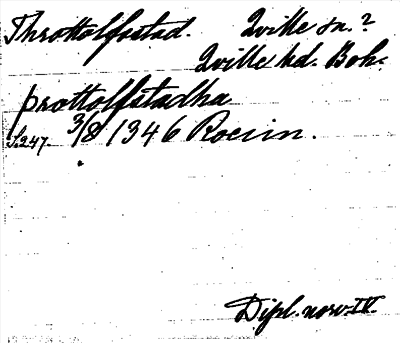 Throttolfsstad. Qville sn.?
Qville hd. Boh.
þrottolfstadha
S.247. 3/8 1346 Roeiin.
Dipl. norv. IV.